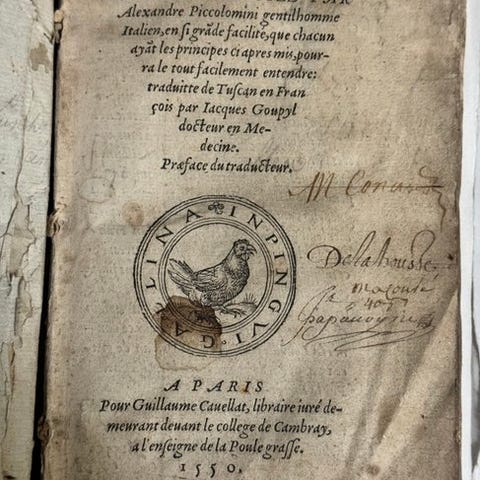 PAR
Alexandre Piccolomini gentilhomme
Italien, en si grāde facilité, que chacun
ayāt les principes ci apres mis, pour-
ra le tout facilement entendre:
traduitte de Tuscan en Fran
çois par Iacques Goupyl
docteur en Me-
decine.
Præface du traducteur.
M Conard
GALLINA IN PINGUI
Delahousse
A PARIS
Pour Guillaume Cauellat, libraire iuré de-
meurant deuant le college de Cambray,
a l'enseigne de la Poule grasse.
1550.